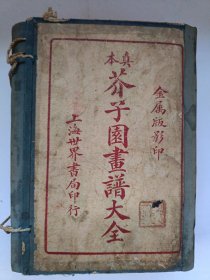 金属版影印
真本
芥子園畫譜大全
上海世界書局印行